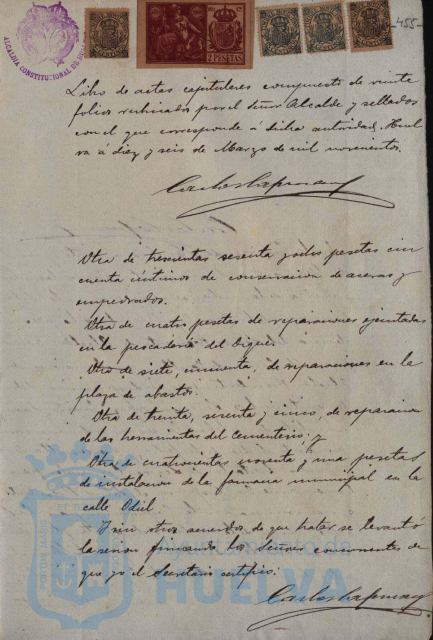 ALCALDIA CONSTITUCIONAL DE
2 PESETAS
455-
Libro de actas capitulares compuesto de veinte
folios rubricados por el Señor Alcalde y sellados
con el que corresponde á dicha autoridad. Huel
va á diez y seis de Marzo de mil novecientos.
Otra de trescientas sesenta y ocho pesetas cin
cuenta céntimos de conservacion de aceras y
empedrados.
Otra de cuatro pesetas de reparaciones ejecutadas
en la pescaderia del Dique
Otra de siete, cincuenta, de reparaciones en la
plaza de abastos.
Otra de treinta, sesenta y cinco, de reparacion
de las herramientas del Cementerio; y
Otra de cuatrocientas noventa y una pesetas
de instalacion de la farmacia municipal en la
calle Odiel
Y sin otros acuerdos de que tratar se levantó
la sesion firmando los Señores concurrentes de
que yo el Secretario certifico.
Ayuntamiento de
HUELVA